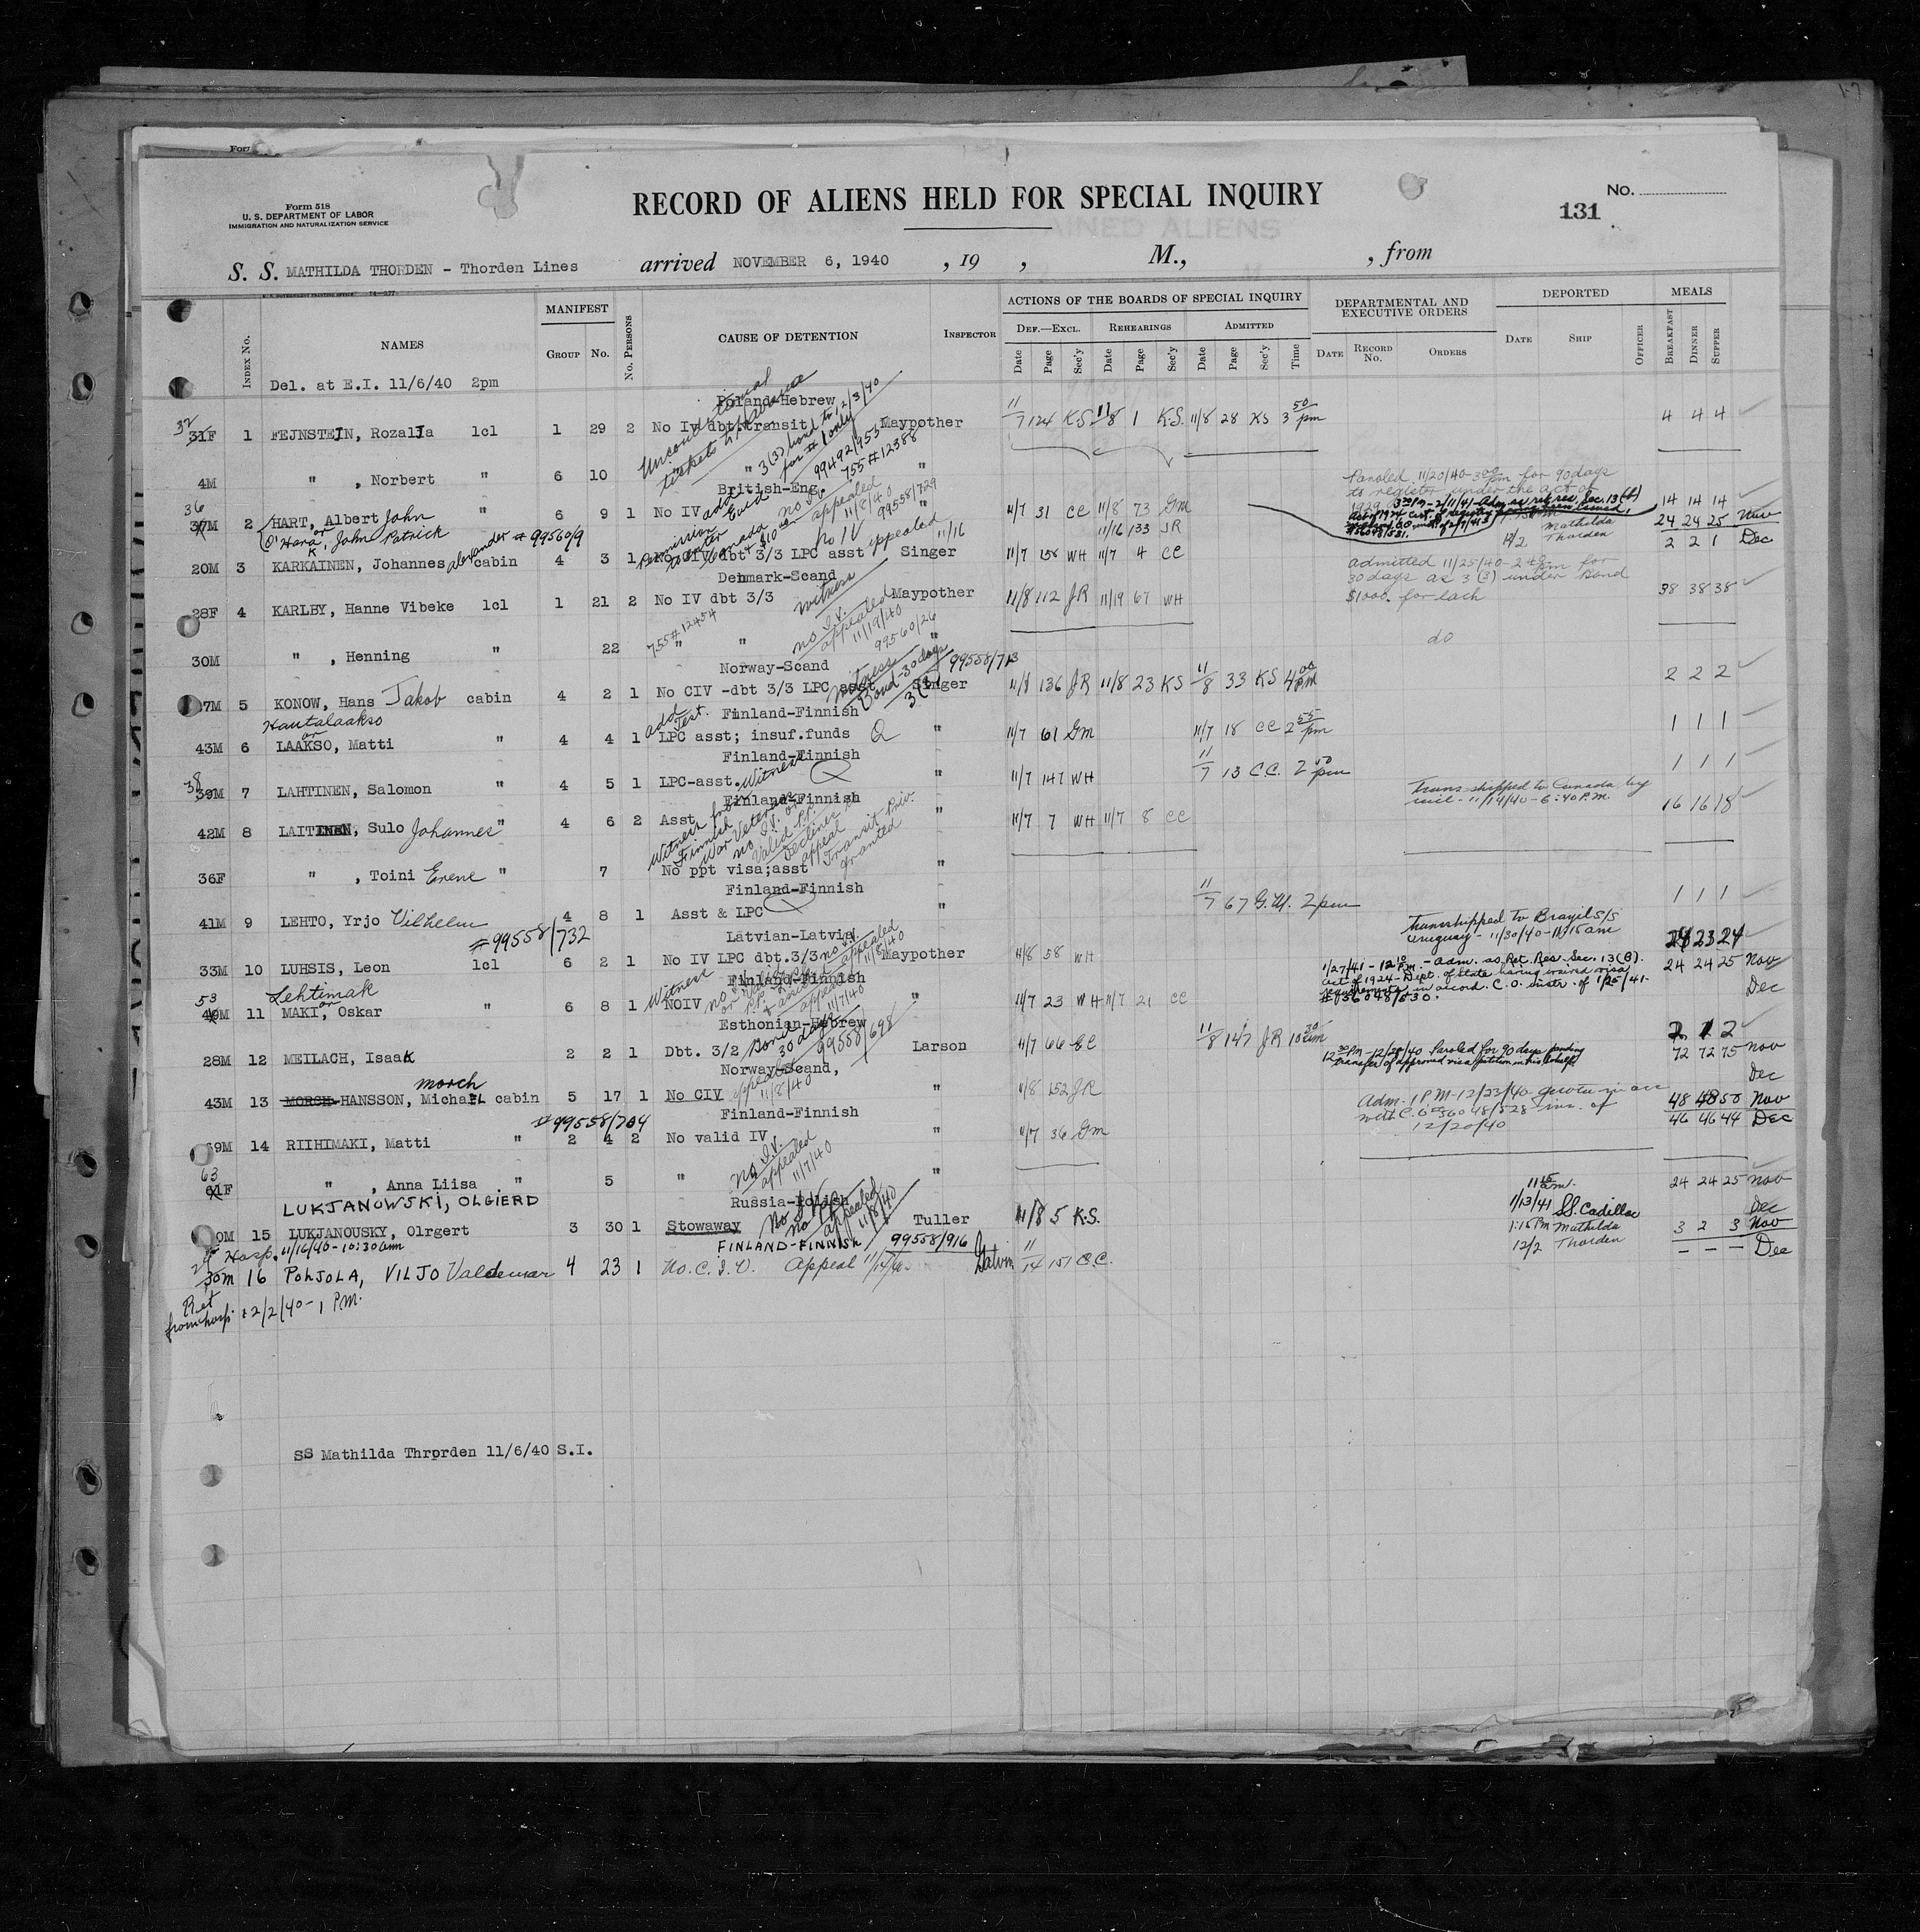 Form 518
U. S. DEPARTMENT OF LABOR
IMMIGRATION AND NATURALIZATION SERVICE
RECORD OF ALIENS HELD FOR SPECIAL INQUIRY
No.
131
S. S. MATHILDA THORDEN - Thorden Lines arrived NOVEMBER 6, 1940 , 19 , M., , from
INDEX No. NAMES MANIFEST GROUP No. No. PERSONS CAUSE OF DETENTION INSPECTOR
ACTIONS OF THE BOARDS OF SPECIAL INQUIRY
DEF.—EXCL. REHEARINGS ADMITTED
Date Page Sec'y Date Page Sec'y Date Page Sec'y Time
DEPARTMENTAL AND EXECUTIVE ORDERS
DATE RECORD No. ORDERS
DEPORTED
DATE SHIP OFFICER
MEALS
BREAKFAST DINNER SUPPER
Del. at E.I. 11/6/40 2pm
Poland-Hebrew
32
31F 1 FEJNSTEJN, Rozalja 1cl 1 29 2 No Iv dbt.transit Maypother 11/7 124 KS 11/8 1 K.S. 11/8 28 KS 3 50 pm 4 4 4
Unconditional
tickets to
3(3) bond to 12/3/40
for #1 only
4M " , Norbert " 6 10 " "
99492/955
755#12388
British-Eng.
Paroled 11/20/40-3 00 pm for 90 days
to register under the act of
1929
36
37M 2 HART, Albert John " 6 9 1 No IV " 11/7 31 CC 11/8 73 GM 14 14 14
or
O'Hara, John Patrick
#99560/9
11/16 133 JR
24 24 25 Nov
add
Permission
to enter
Canada
+ $10
appealed
11/8/40
99558/729
no IV appealed 11/16
12/2 Mathilda Thorden 2 2 1 Dec
20M 3 KARKAINEN, Johannes Alexander cabin 4 3 1 No IV dbt 3/3 LPC asst Singer 11/7 158 WH 11/7 4 CC
admitted 11/25/40-2 48 pm for
30 days as 3(3) under Bond
$1000. for each
Denmark-Scand
28F 4 KARLBY, Hanne Vibeke 1cl 1 21 2 No IV dbt 3/3 Maypother 11/8 112 JR 11/19 67 WH 38 38 38
witness
755#12454
no I.V.
appealed
11/19/40
99560/26
30M " , Henning " 22 " " "
do
Norway-Scand
99558/713
37M 5 KONOW, Hans Jakob cabin 4 2 1 No CIV -dbt 3/3 LPC asst Singer 11/8 136 JR 11/8 23 KS 11/8 33 KS 4 00 pm 2 2 2
Witness
Bond-30 days
3(3)
Hautalaakso
or
add Test.
Finland-Finnish
43M 6 LAAKSO, Matti " 4 4 1 LPC asst; insuf.funds " 11/7 61 GM 11/7 18 CC 2 55 pm 1 1 1
Finland-Finnish
38
39M 7 LAHTINEN, Salomon " 4 5 1 LPC-asst. Witness " 11/7 147 WH 11/7 13 C.C. 2 50 pm 1 1 1
Finland-Finnish
Trans-shipped to Canada by
rail-11/14/40-6:40 P.M.
42M 8 LAITINEN, Sulo Johannes " 4 6 2 Asst " 11/7 7 WH 11/7 8 CC 16 16 18
Witness for
Finnish
War Veteran
no I.V. or
Valid P.P.
declines to
appeal
Transit Priv.
granted
36F " , Toini Erene " 7 No ppt visa;asst "
Finland-Finnish
41M 9 LEHTO, Yrjo Vilhelm 4 8 1 Asst & LPC " 11/7 67 G.M. 2 pm 1 1 1
#99558/732
Latvian-Latvia
Transhipped to Brazil S/S
Uruguay-11/30/40-11:15 am
24 23 24
33M 10 LUHSIS, Leon 1cl 6 2 1 No IV LPC dbt.3/3 Maypother 11/8 58 WH
no I.V.
appealed
11/8/40
1/27/41-12 10 P.m.-adm. as Ret. Res. Sec. 13(B).
act of 1924-Dept. of State having waived visa
requirements in accord. C.O. instr. of 1/25/41.
#56048/530.
24 24 25 Nov
Lehtimak
or
Finland-Finnish
53
49M 11 MAKI, Oskar " 6 8 1 NOIV " 11/7 23 WH 11/7 21 CC Dec
Witness
appeal
11/7/40
Esthonian-Hebrew
28M 12 MEILACH, Isaak 2 2 1 Dbt. 3/2 Larson 11/7 66 CC 11/8 147 JR 10 30 am 2 1 2
Bond
30 days
99558/698
Norway-Scand,
12 30 PM-12/20/40 Paroled for 90 days pending
transfer of approved visa petition in his behalf
72 72 75 Nov
Dec
morch
43M 13 MORSH-HANSSON, Michael cabin 5 17 1 No CIV " 11/8 152 JR
appealed
11/8/40
#99558/704
Adm. 1 P.M-12/23/40
with C.O. 56048/528 ins. of
12/20/40
48 48 50 Nov
46 46 44 Dec
Finland-Finnish
69M 14 RIIHIMAKI, Matti " 2 4 2 No valid IV " 11/7 36 GM
no I.V.
appealed
11/7/40
63
61F " , Anna Liisa " 5 " "
24 24 25 Nov
LUKJANOWSKI, OLGIERD
Russia-Polish
11 15 am.
1/13/41 SS. Cadillac
Dec
15 LUKJANOUSKY, Olrgert 3 30 1 Stowaway Tuller 11/8 5 K.S.
appealed
11/8/40
1:15 Pm Mathilda
12/2 Thorden
3 2 3 Nov
– – – Dec
Hosp. 11/16/40-10:30am
FINLAND-FINNISH
99558/916
30m 16 POHJOLA, VILJO Valdemar 4 23 1 No. C.I.V. Appeal 11/14/40 Galvin 11/14 151 C.C.
Ret
from hosp. 12/2/40-1 P.M.
SS Mathilda Thrprden 11/6/40 S.I.